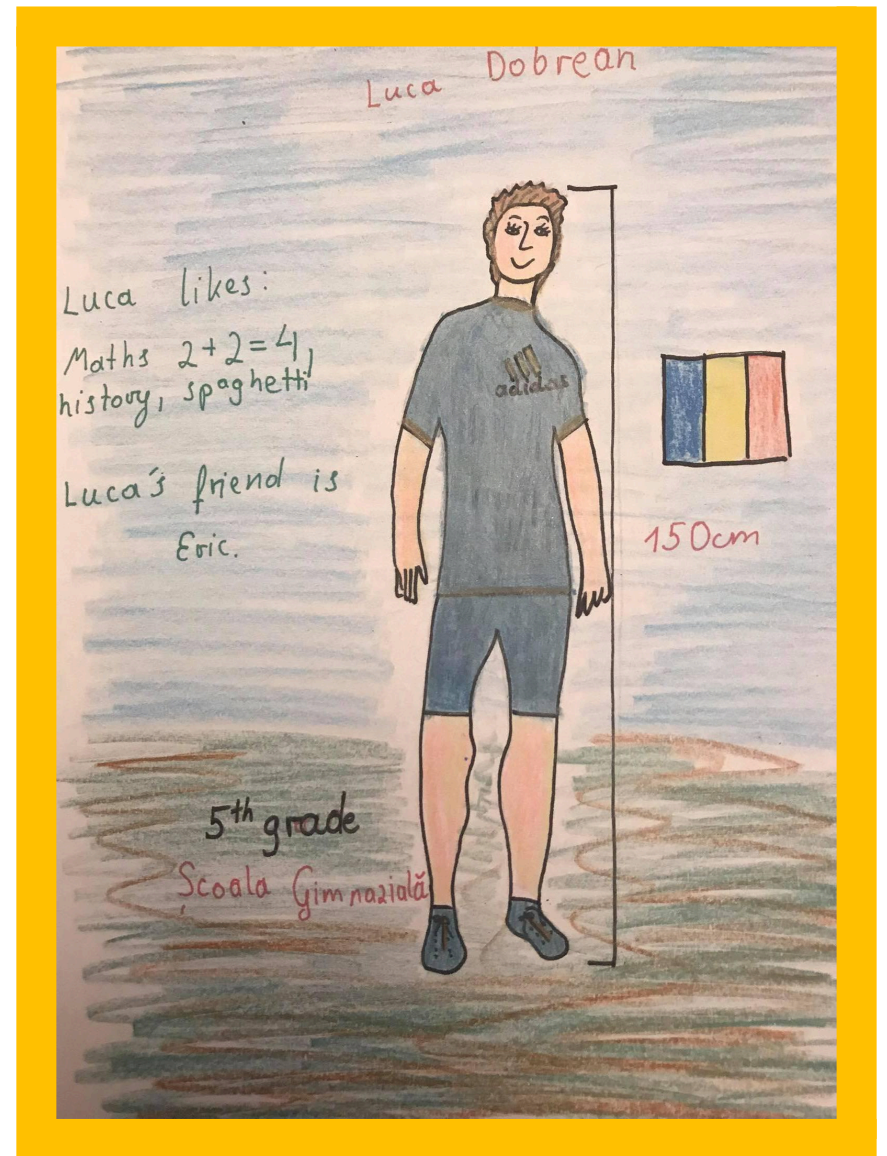 Luca Dobrean
Luca likes:
Maths 2+2=4,
history, spaghetti
Luca's friend is
Eric.
adidas
150cm
5th grade
Școala Gimnazială